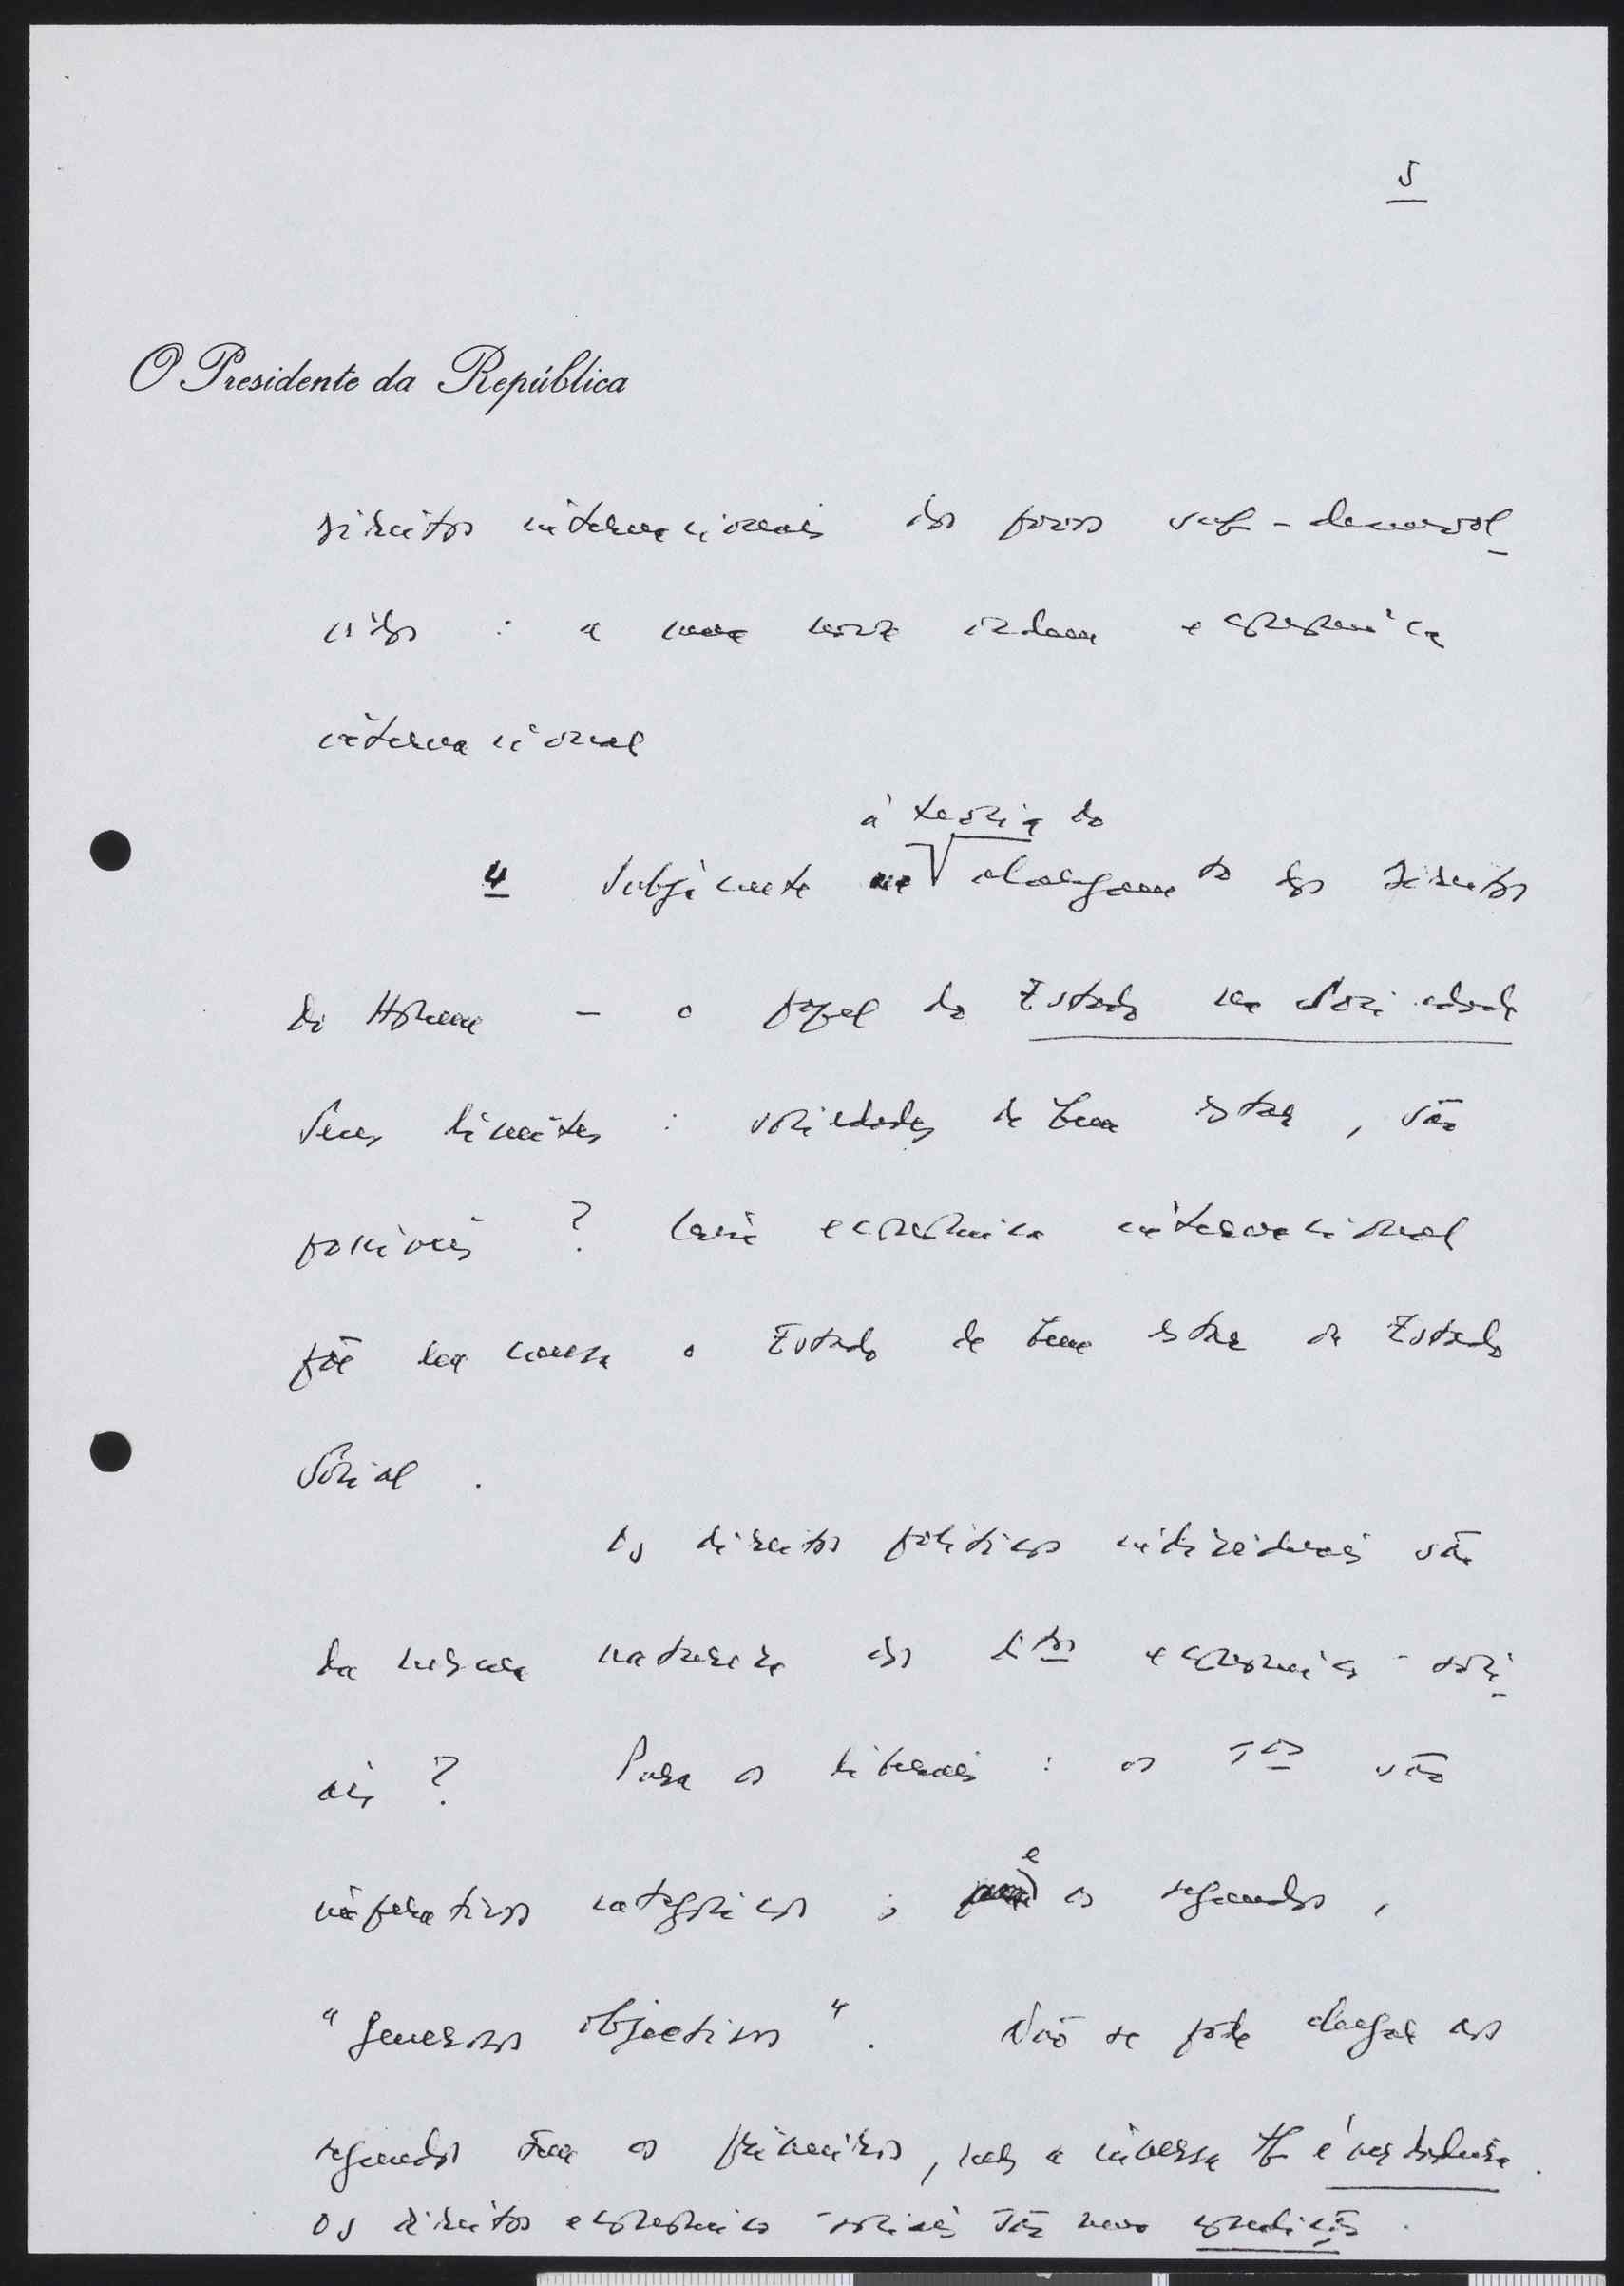 5
O Presidente da República
direitos internacionais dos povos sub-desenvol
vidos : a nova ordem económica
internacional
à teoria do
4 Subjacente alargamto dos direitos
do Homem – o papel do Estado na Sociedade
Seus limites : sociedades de bem estar, são
possíveis ? Crise económica internacional
põe em causa o Estado de bem estar ou Estado
Social .
Os direitos políticos individuais são
da mesma natureza dos dtos económico-soci
ais ? Para os liberais : os 1os são
imperativos categóricos ; e os segundos,
"generosos objectivos". Não se pode chegar aos
segundos sem os primeiros, mas a inversa tb é verdadeira.
Os direitos económico-sociais são uma condição.